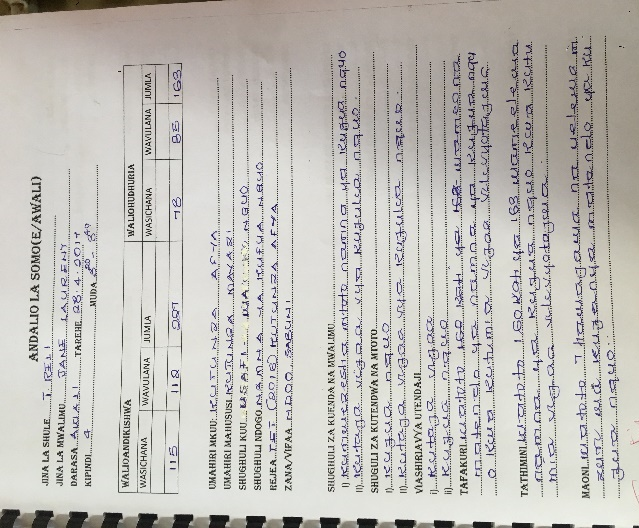 ANDALIO LA SOMO(E/AWALI)
JINA LA SHULE. TRELI
JINA LA MWALIMU. JANE LAURENT
DARASA AWALI TAREHE 28.4.2017
KIPINDI. 4 MUDA
WALIOANDIKISHWA WALIOHUDHURIA
WASICHANA WAVULANA JUMLA WASICHANA WAVULANA JUMLA
115 112 227 78 85 163
UMAHIRI MKUU. KUTUNZA AFYA
UMAHIRI MAHUSUSI. KUTUNZA MAVAZI
SHUGHULI KUU. USAFI WA NGUO
SHUGHULI NDOGO. NAMNA YA KUFUA NGUO
REJEA. TET (2016) KUTUNZA AFYA
ZANA/VIFAA. NDOO, SABUNI
SHUGHULI ZA KUENDA NA MWALIMU.
I) Kumuwezesha mtoto namna ya kufua nguo
II) Kutaja vifaa vya kufulia nguo.
SHUGULI ZA KUTENDWA NA MTOTO.
I). Kufua nguo
II). Kutaja vifaa vya kufulia nguo.
VIASHIRIAVYA UTENDAJI.
i). Kutaja vifaa
ii). Kufua nguo
TAFAKURI. Watoto 160 kati ya 163 wameona
matendo ya namna ya kufua nguo
kutumia vifaa vilivyotajwa
TATHIMINI. Watoto 160 kati ya 163 wameelewa
namna ya kufua nguo kwa kutu
mia vifaa vilivyotajwa.
MAONI. Watoto 7 hawajaelewa
kufanya matendo ya ku
fua nguo.